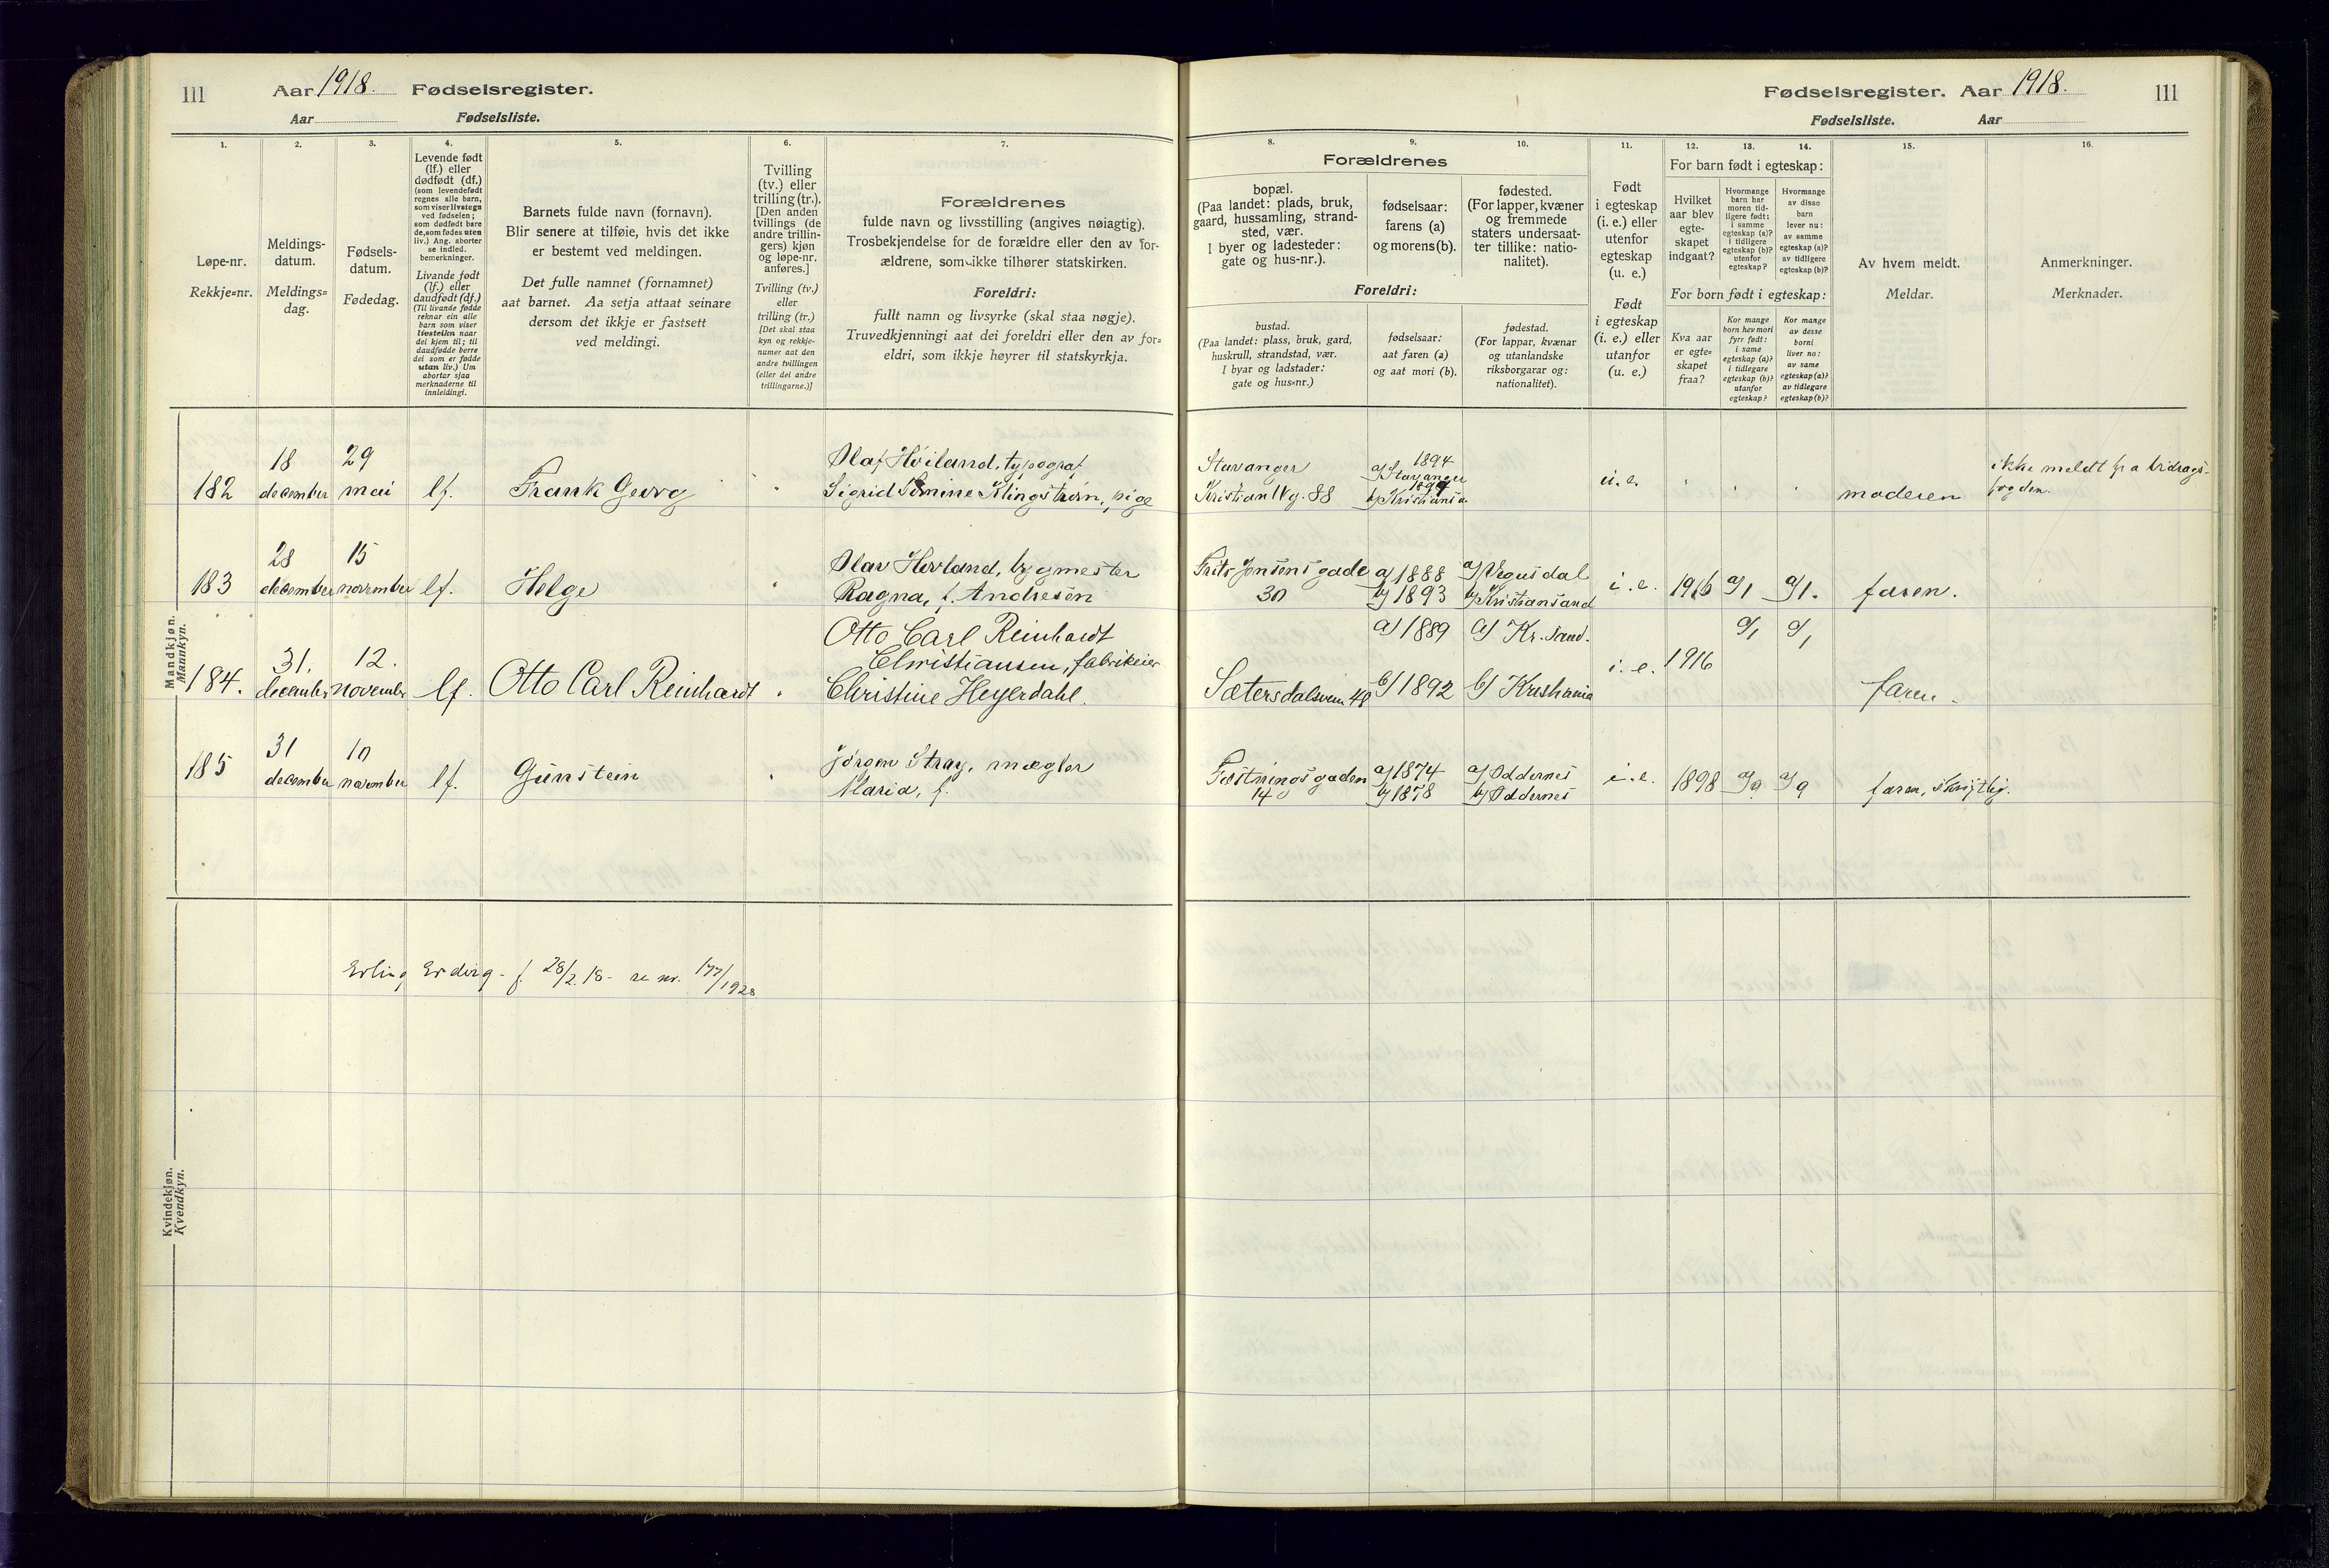 111 Aar 1918. Fødselsregister.
Aar Fødselsliste.
1.
2.
3.
4.
5.
6.
7.
Løpe-nr.
Rekkje=nr.
Meldings-
datum.
Meldings=
dag.
Fødsels-
datum.
Fødedag.
Levende født
(lf.) eller
dødfødt (df.)
(som levendefødt
regnes alle barn,
som viser livstegn
ved fødselen;
som dødfødt bare
de, som fødes uten
liv.) Ang. aborter
se indled.
bemerkninger.
Livande født
(lf.) eller
daudfødt (df.)
(Til livande fødde
reknar ein alle
barn som viser
livsteikn naar
dei kjem til; til
daudfødde berre
dei som er fødde
utan liv.) Um
abortar sjaa
merknaderne til
innleidingi.
Barnets fulde navn (fornavn).
Blir senere at tilføie, hvis det ikke
er bestemt ved meldingen.
Det fulle namnet (fornamnet)
aat barnet. Aa setja attaat seinare
dersom det ikkje er fastsett
ved meldingi.
Tvilling
(tv.) eller
trilling (tr.).
[Den anden
tvillings (de
andre trillin-
gers) kjøn
og løpe-nr.
anføres.]
Tvilling (tv.)
eller
trilling (tr.)
[Det skal staa
kyn og rekkje-
numer aat den
andre tvillingen
(eller dei andre
trillingarne.)]
Forældrenes
fulde navn og livsstilling (angives nøiagtig).
Trosbekjendelse for de forældre eller den av for-
ældrene, som ikke tilhører statskirken.
Foreldri:
fullt namn og livsyrke (skal staa nøgje).
Truvedkjenningi aat dei foreldri eller den av for=
eldri, som ikkje høyrer til statskyrkja.
Mandkjøn.
Mannkyn.
182 18 december 29 mai lf. Frank Georg " Olaf Høiland, typograf
Sigrid Klingstrøm, pige
183 28 december 15 november lf. Helge " Olav Hovland, bygmester
Ragna, f. Andresen
184. 31. december 12. november lf. Otto Carl Reinhardt " Otto Carl Reinhardt
Christiansen, fabrikeier
Christine Heyerdahl.
185 31 december 10 november lf. Gunstein " Jørgen Stray, mægler
Maria, f.
Kvindekjøn.
Kvendkyn.
Erling f. 28/2.18 - se nr. 177/1928
Fødselsregister. Aar 1918. 111
Fødselsliste. Aar
8.
9.
10.
11.
12.
13.
14.
15.
16.
Forældrenes
bopæl.
(Paa landet: plads, bruk,
gaard, hussamling, strand-
sted, vær.
I byer og ladesteder:
gate og hus-nr.).
fødselsaar:
farens (a)
og morens (b).
fødested.
(For lapper, kvæner
og fremmede
staters undersaat-
ter tillike: natio-
nalitet).
Foreldri:
bustad.
(Paa landet: plass, bruk, gard,
huskrull, strandstad, vær.
I byar og ladstader:
gate og hus=nr.)
fødselsaar:
aat faren (a)
og aat mori (b).
fødestad.
(For lappar, kvænar
og utanlandske
riksborgarar og:
nationalitet).
Født
i egteskap
(i. e.) eller
utenfor
egteskap
(u. e.)
Født
i egteskap
(i. e.) eller
utanfor
(u. e.)
For barn født i egteskap:
Hvilket
aar blev
egte-
skapet
indgaat?
Hvormange
barn har
moren tid-
ligere født:
i samme
egteskap (a)?
i tidligere
egteskap (b)?
utenfor
egteskap?
Hvormange
av disse
barn
lever nu:
av samme
egteskap (a)?
av tidligere
egteskap (b)?
For born født i egteskap:
Kva aar
er egte=
skapet
fraa?
Kor mange
born hev mori
fyrr født:
i same
egteskap (a)?
i tidlegare
egteskap (b)?
utanfor
egteskap?
Kor mange
av desse
borni
liver no:
av same
egteskap (a)?
av tidlegare
egteskap (b)?
Av hvem meldt.
Meldar.
Anmerkninger.
Merknader.
Stavanger
Kristian IV g. 88
1894
a) Stavanger
b) Kristiania
u.e. moderen
ikke meldt fra bidrags-
fogden.
Frits Jensens gade
30
a) 1888
b) 1893
a) Vegusdal
b) Kristiansand
i.e. 1916 a/1 a/1. faren.
Sætersdalsveien 48
a) 1889
b) 1892
a) Kr.sand.
b) Kristiania
i.e. 1916 a/1 a/1 faren.
Festningsgaden
14
a) 1874
b) 1878
a) Oddernes
b) Oddernes
i.e. 1898 a/9 a/9 faren, skriftlig.